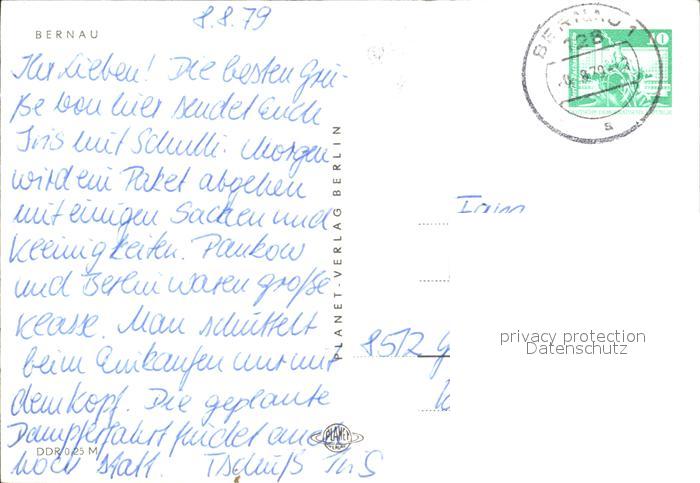 8.8.79
BERNAU
Ihr Lieben! Die besten Grü-
ße von hier sendet Euch
Iris mit Schulli. Morgen
wird ein Paket abgehen
mit einigen Sachen und
Kleinigkeiten. Pankow
und Berlin waren große
Klasse. Man schüttelt
beim Einkaufen nur mit
dem Kopf. Die geplante
Dampferfahrt findet auch
noch statt. Tschüß Iris
DDR 0,25 M
PLANET-VERLAG BERLIN
PLANET
BERNAU 1
128
8.79
a
10
8512
privacy protection
Datenschutz